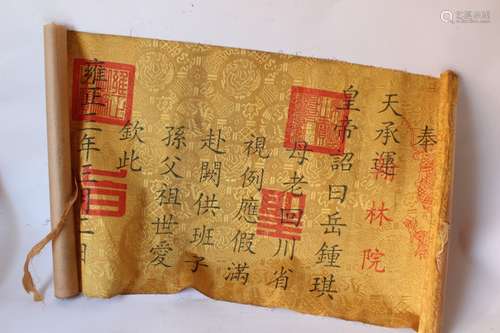 奉
天承運
翰林院
皇帝詔曰岳鍾琪
母老回川省
視例應假滿
赴闕供班子
孫父祖世愛
欽此
雍正二年三月一日
聖旨